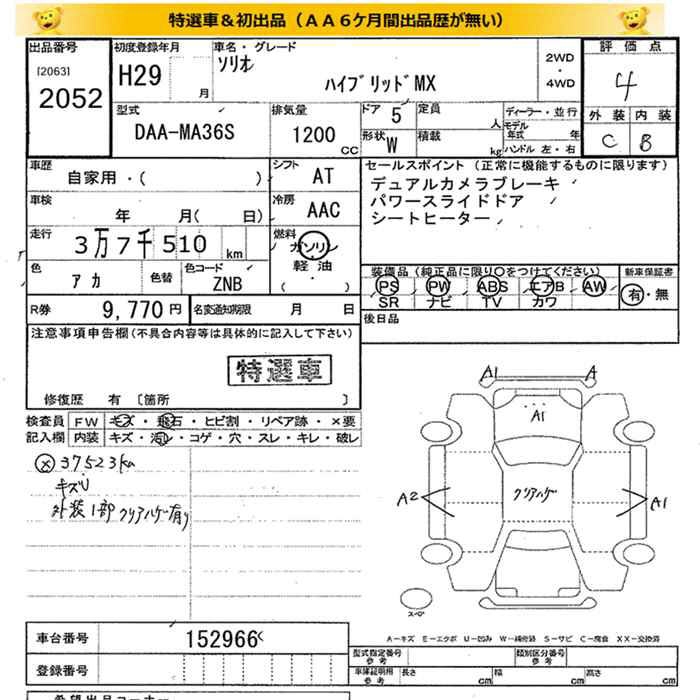 特選車＆初出品（ＡＡ６ケ月間出品歴が無い）
出品番号 初度登録年月 車名・グレード 評価点
[2063] H29 月 ソリオ 2WD・4WD 4
2052 ハイブリッドMX
型式 排気量 ドア 5 定員 人 ディーラー・並行 外装 内装
DAA-MA36S 1200 CC 形状 W 積載 kg モデル年式 年 C B
ハンドル 左・右
車歴 シフト AT セールスポイント（正常に機能するものに限ります）
自家用・( ) デュアルカメラブレーキ
車検 年 月( 日) 冷房 AAC パワースライドドア
シートヒーター
走行 3万7千510 km 燃料 ガソリン・軽油・( )
色 アカ 色替 色コード ZNB 装備品（純正品に限り○をつけてください） 新車保証書
PS PW ABS エアB AW 有・無
SR ナビ TV カワ
R券 9,770円 名変通知期限 月 日 後日品
注意事項申告欄(不具合内容等は具体的に記入して下さい)
特選車
修復歴 有 〔箇所 〕
検査員 FW キズ・飛石・ヒビ割・リペア跡・×要
記入欄 内装 キズ・汚レ・コゲ・穴・スレ・キレ・破レ
ⓧ37523km
キズU
外装1部クリアハゲ有り
A1 A
A1
A2 クリアハゲ A1
スペア
車台番号 152966
A－キズ E－エクボ U－凹み W－補修跡 S－サビ C－腐食 XX－交換済
登録番号 型式指定番号 参考 類別区分番号 参考
車庫証明用 参考 長さ cm 幅 cm 高さ cm
希望出品コーナー